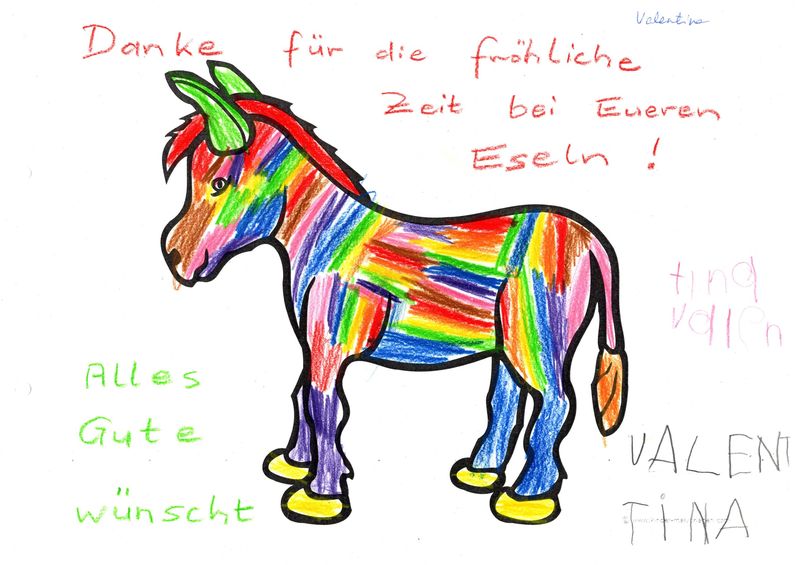 Valentina
Danke für die fröhliche
Zeit bei Eueren
Eseln !
tina
valen
Alles
Gute
wünscht
VALENT
TINA